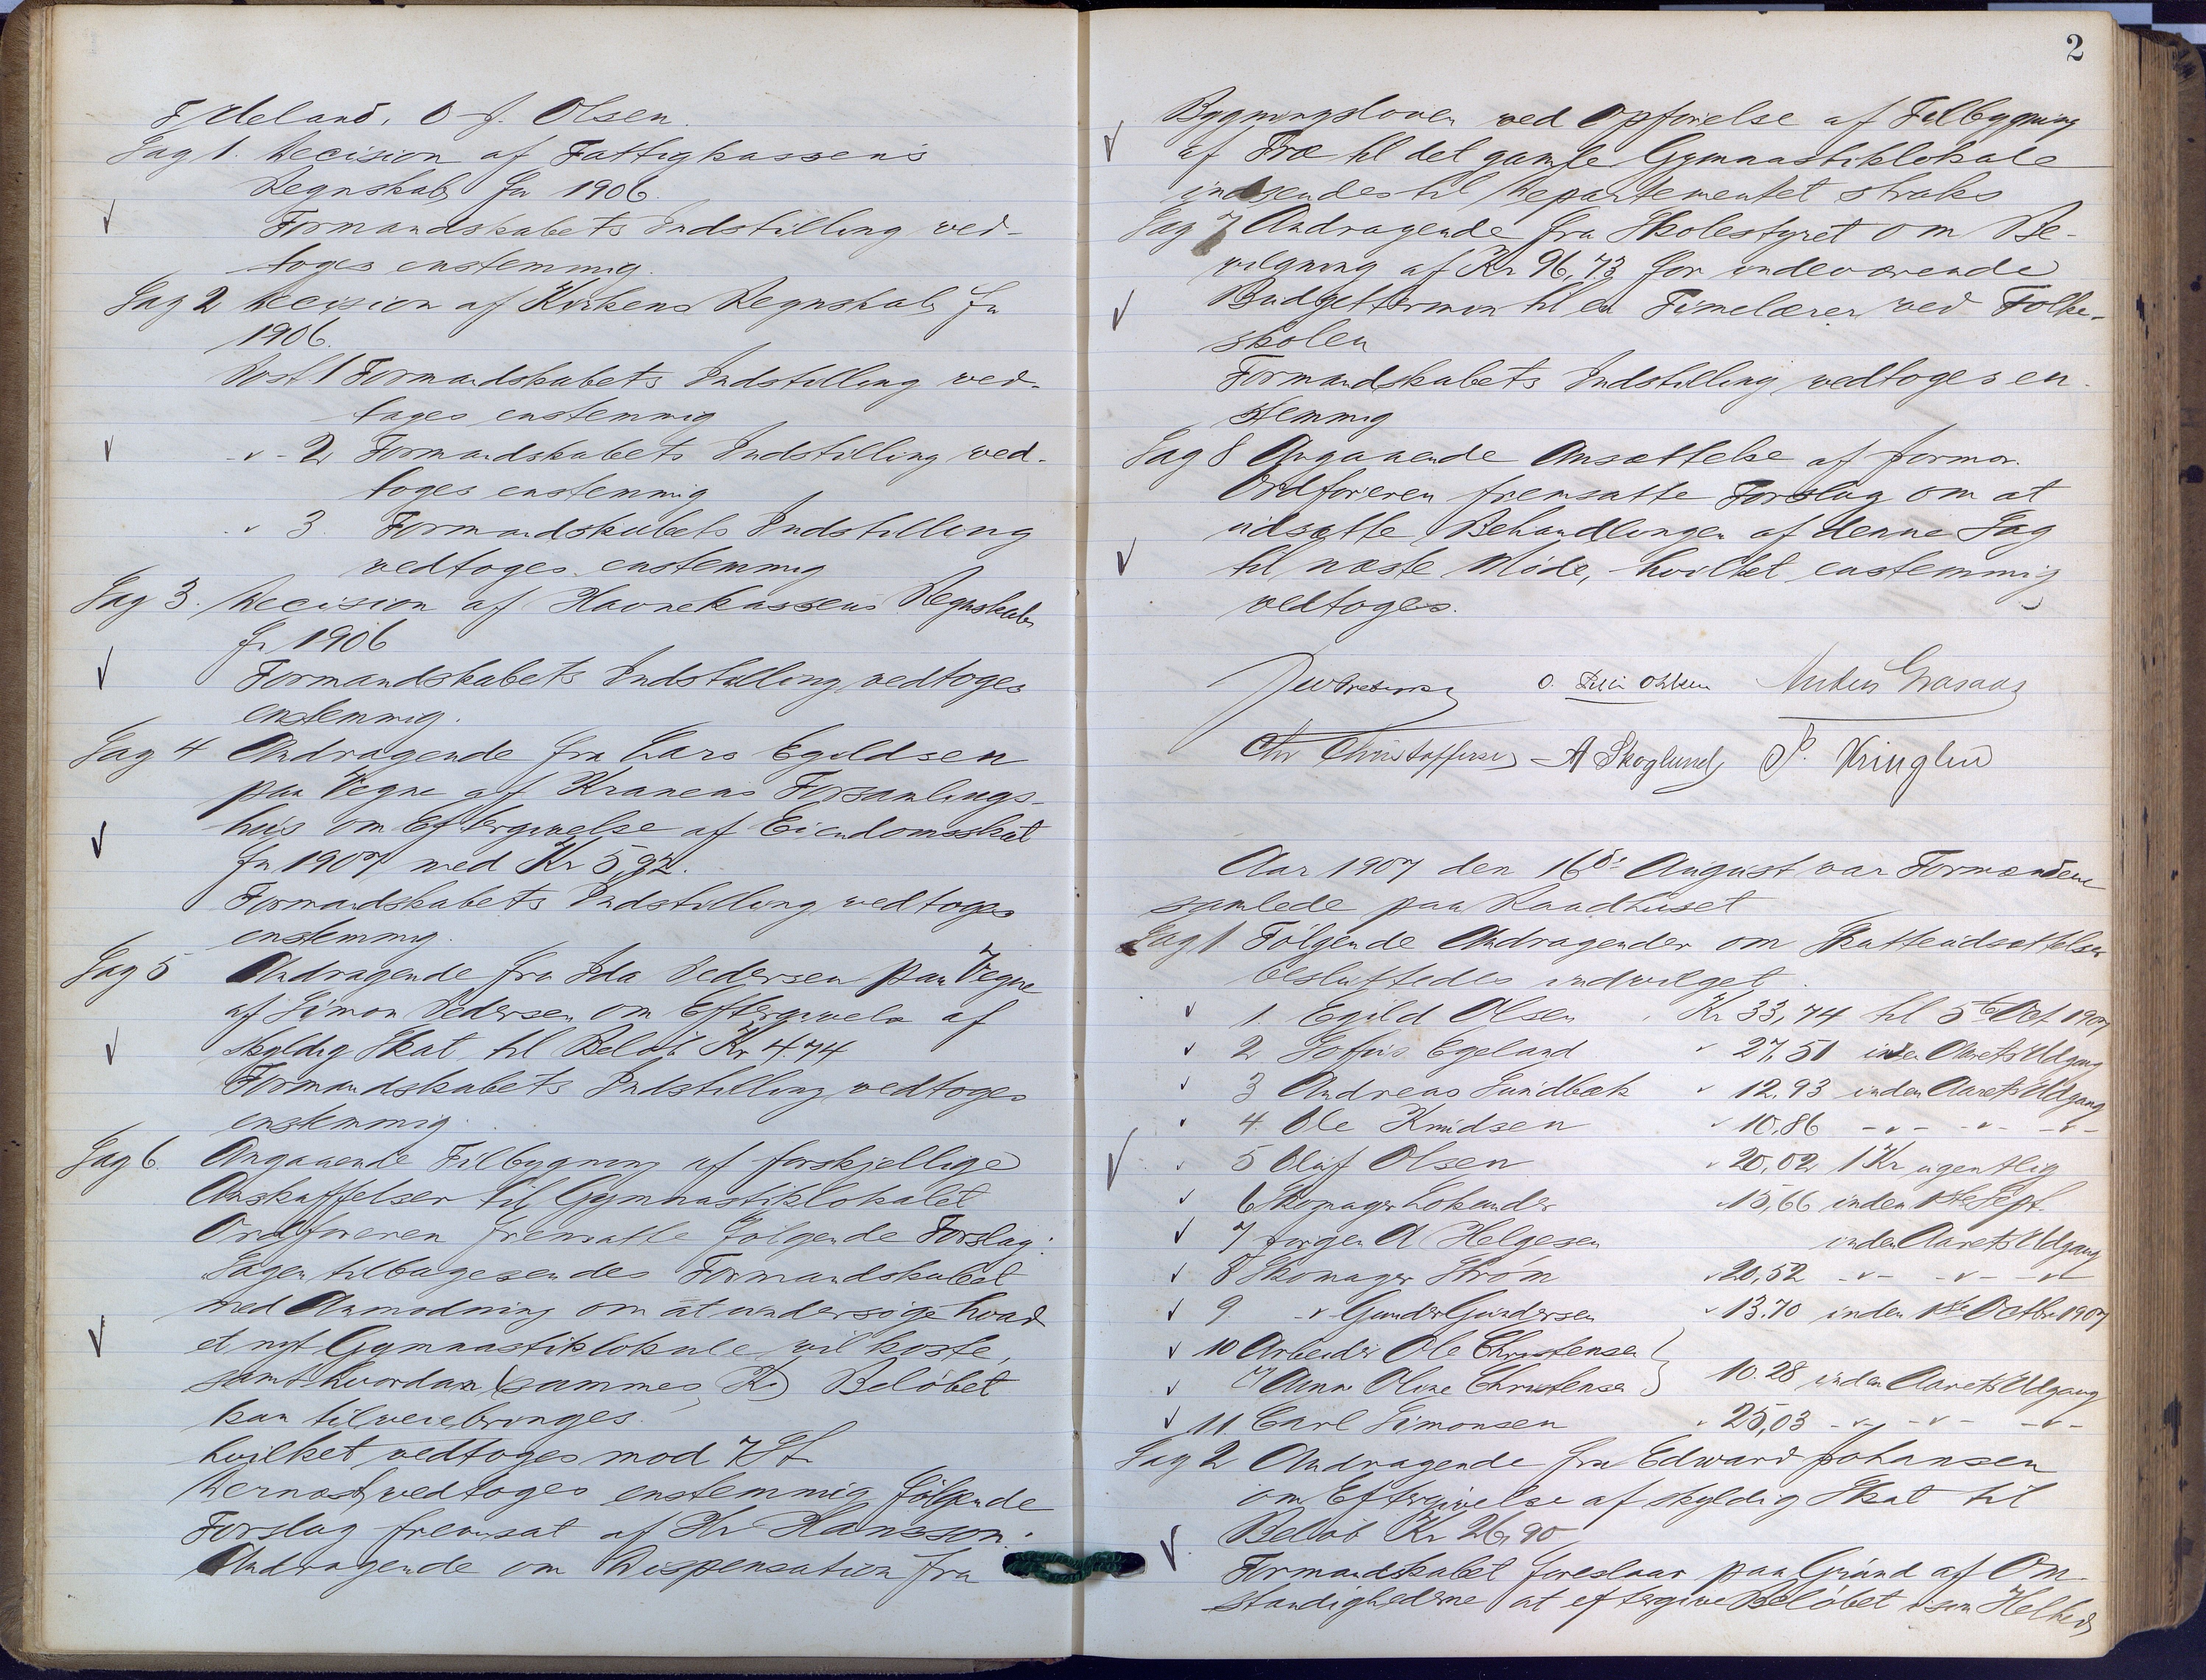 Fjeldeland, O. J. Olsen.
Sag 1. Decision af Fattigkassens
Regnskab for 1906.
Formandskabets Indstilling ved-
toges enstemmig.
Sag 2 Decision af Kirkens Regnskab for
1906.
Post 1 Formandskabets Indstilling ved-
toges enstemmig
-"- 2 Formandskabets Indstilling ved-
toges enstemmig
" 3. Formandskabets Indstilling
vedtoges enstemmig
Sag 3. Decision af Havnekassens Regnskab
for 1906
Formandskabets Indstilling vedtoges
enstemmig.
Sag 4 Andragende fra Lars Egeldsen
paa Vegne af Kranens Forsamlings-
hus om Eftergivelse af Eiendomsskat
for 1907 med Kr 5,92.
Formandskabets Indstilling vedtoges
enstemmig.
Sag 5 Andragende fra Ida Pedersen paa Vegne
af Simon Pedersen om Eftergivelse af
skyldig Skat til Beløb Kr 4.74
Formandskabets Indstilling vedtoges
enstemmig.
Sag 6. Angaaende Tilbygning af forskjellige
Anskaffelser til Gymnastiklokalet
Ordføreren fremsatte følgende Forslag:
Sagen tilbagesendes Formandskabet
med Anmodning om at undersøge hvad
et nyt Gymnastiklokale vil koste,
samt hvordan (sammes K) Beløbet
kan tilveiebringes.
hvilket vedtoges mod 7 St.
Dernæst vedtoges enstemmig følgende
Forslag fremsat af Hr Hansson.
Andragende om Dispensation fra
2
Bygningsloven ved Opførelse af Tilbygning
af Træ til det gamle Gymnastiklokale
indsendes til Departementet straks
Sag 7 Andragende fra Skolestyret om Be-
vilgning af Kr 96,73 for indeværende
Budgettermin til en Timelærer ved Folke-
skolen
Formandskabets Indstilling vedtoges en-
stemmig
Sag 8 Angaaende Ansættelse af Jormor.
Ordføreren fremsatte Forslag om at
udsætte Behandlingen af denne Sag
til næste Møde, hvilket enstemmig
vedtoges.
Chr Christoffersen A Skoglund P. Kringlen
Aar 1907 den 16de August var Formændene
samlede paa Raadhuset
Sag 1 Følgende Andragender om Skatteudsættelser
besluttedes indvilget.
1. Egild Olsen Kr 33,74 til 5te Oct 1907
2 Sofus Egeland " 27,51 inden Aarets Udgang
3 Andreas Sundbæk " 12,93 inden Aarets Udgang
4. Ole Knudsen " 10,86 -"- -"- -"-
5 Oluf Olsen " 20,02 1 Kr ugentlig
6 Skomager Lokander " 15,66 inden 1ste Sept.
7 Jørgen A Helgesen inden Aarets Udgang
8 Skomager Strøm " 20,52 -"- -"- -"-
9. -"- Gunder Gundersen " 13.70 inden 1ste Octbr 1907
10 Arbeider Ole Christensen
" Anne Oline Christensen } 10.28 inden Aarets Udgang
11 Carl Simonsen " 25,03 -"- -"- -"-
Sag 2 Andragende fra Edward Johansen
om Eftergivelse af skyldig Skat til
Beløb Kr 26,90
Formandskabet foreslaar paa Grund af Om-
stændighederne at eftergive Beløbet i sin Helhed